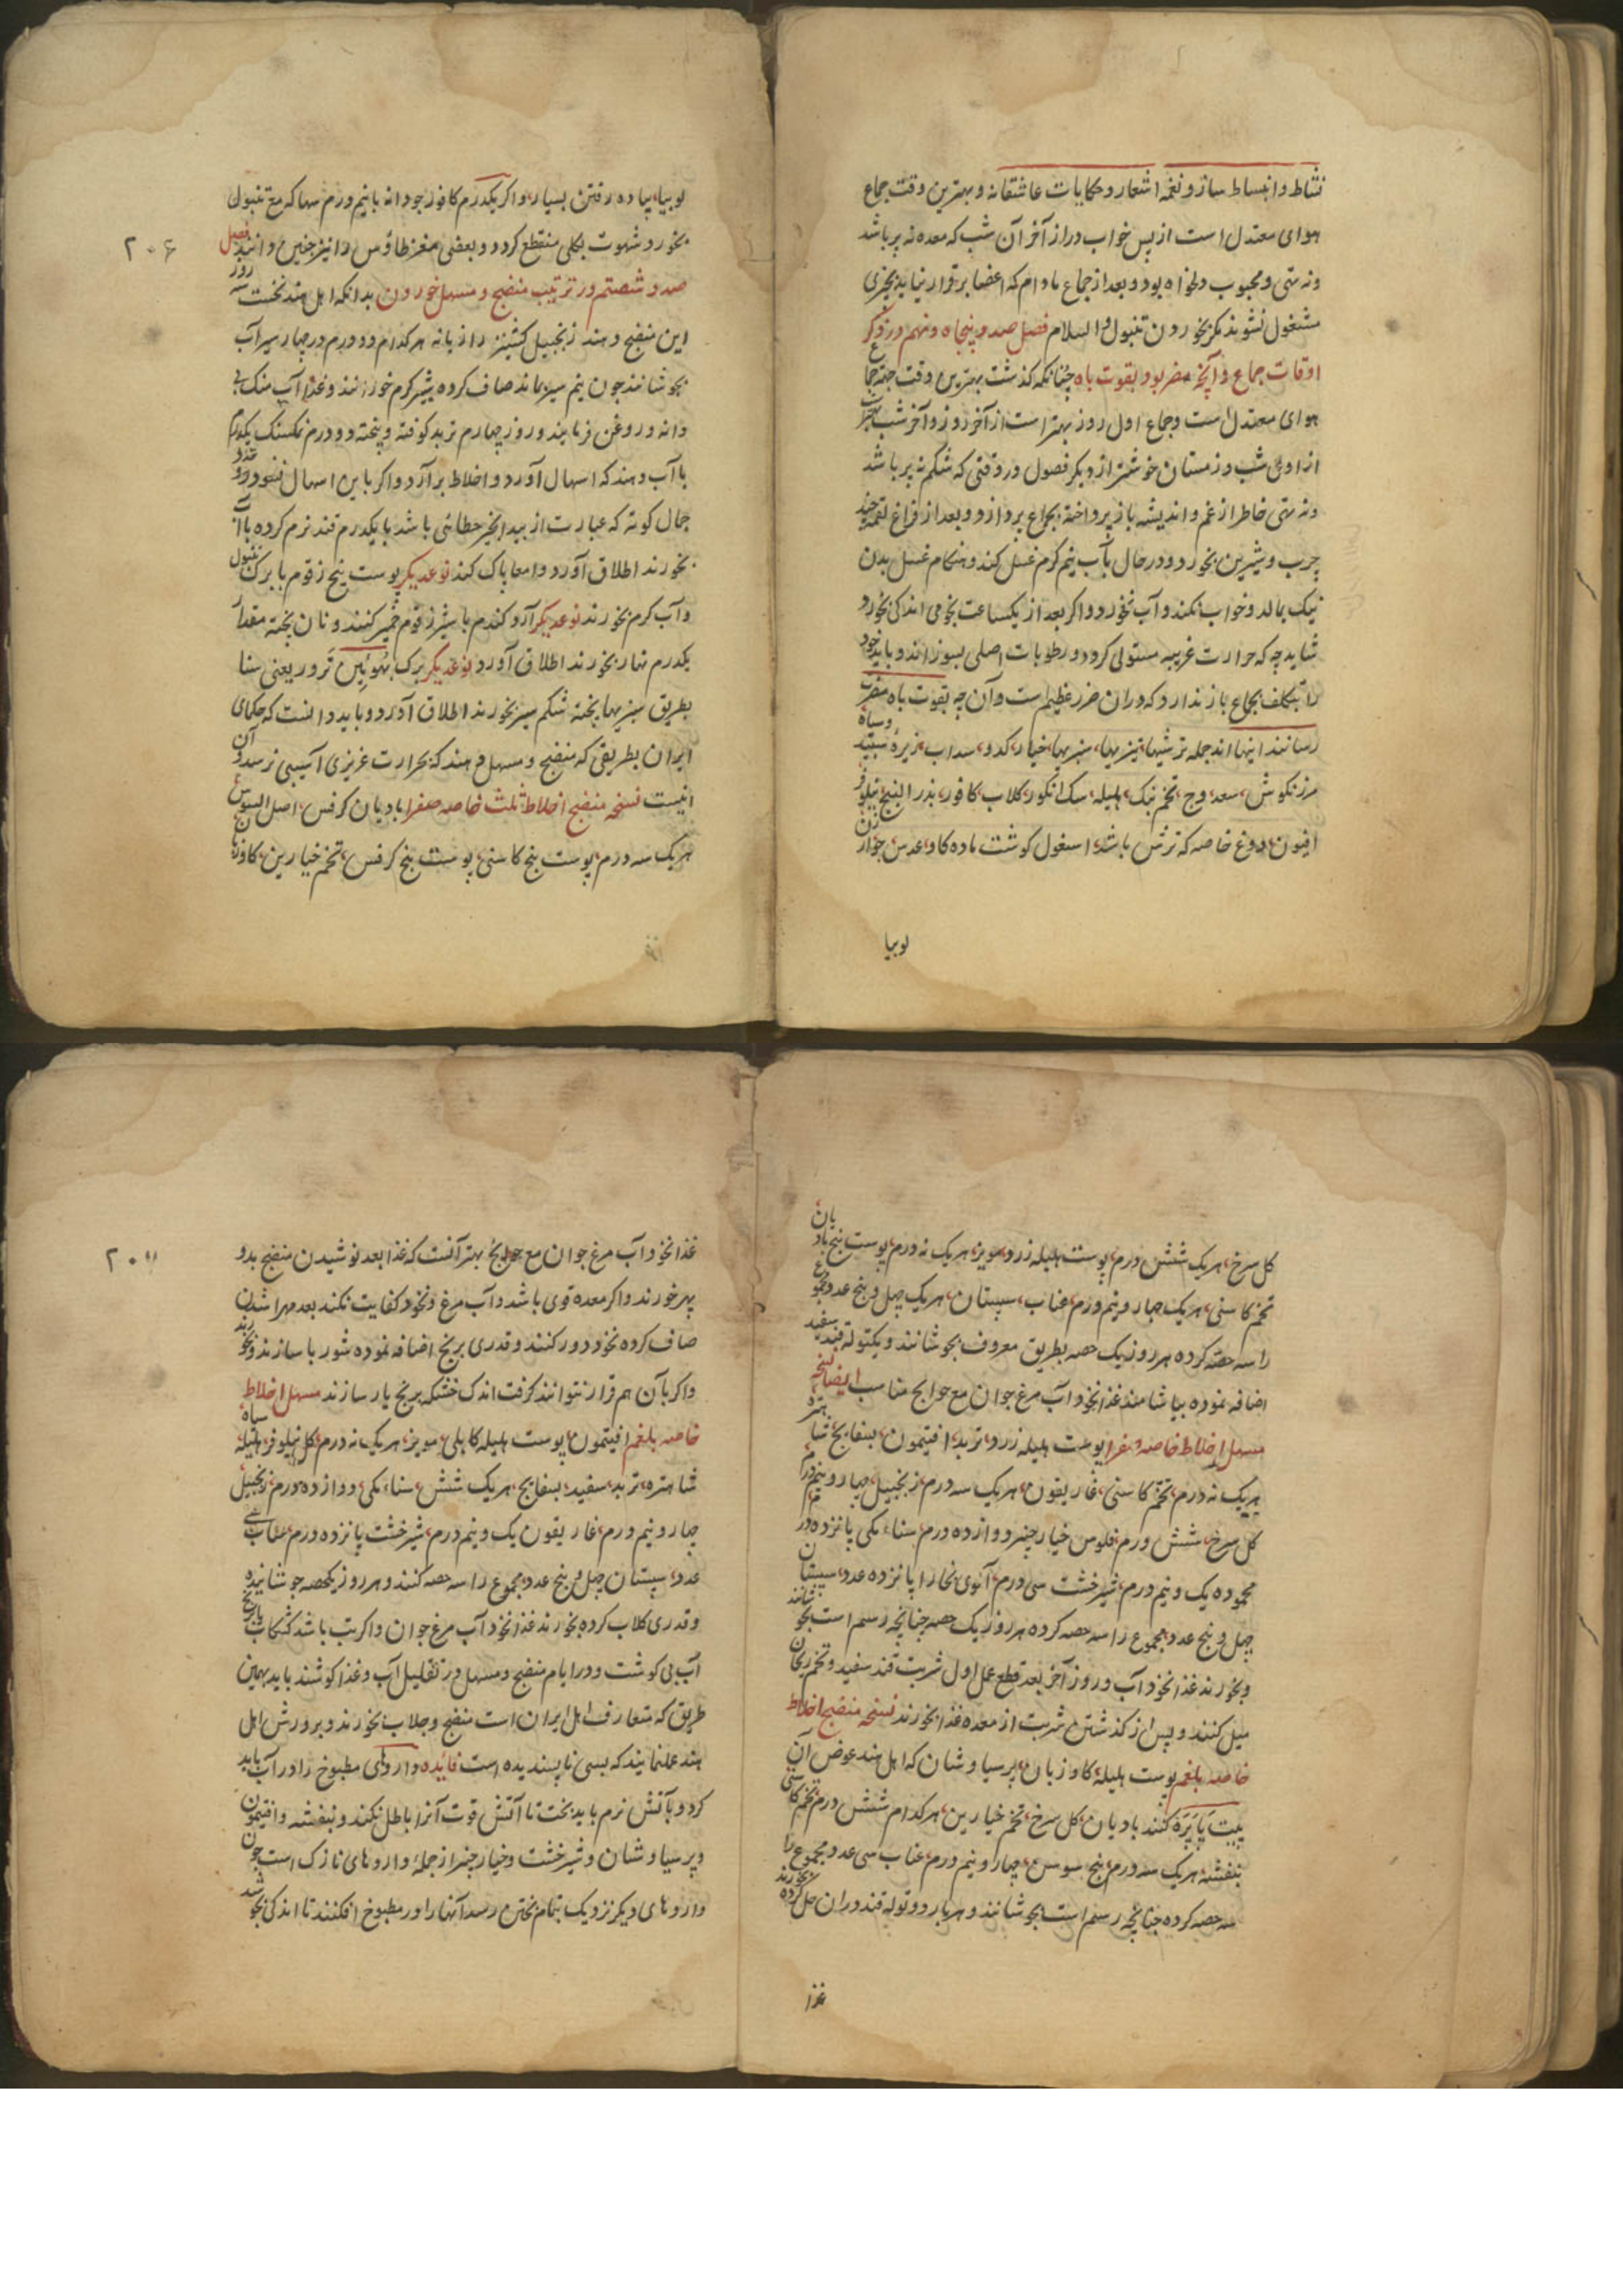 نشاط و انبساط ساز و نغمه اشعار و حکایات عاشقانه و بهترین وقت جماع
هوای معتدل است از پس خواب دراز آخر آن شب که معده نه پر باشد
و نه تهی و محبوب دلخواه بود و بعد از جماع مادام که اعضا برقرار نیاید بچیزی
مشغول نشوند مکر بخوردن تنبول والسلام فصل صد و پنجاه و نهم در ذکر
اوقات جماع و آنچه مضر بود بقوت باه چنانکه کذشت بهترین وقت جهة جماع
هوای معتدل است و جماع اول روز بهتر است از آخر روز و آخر شب بهتر
از اول شب و زمستان خوشتر از دیکر فصول در وقتی که شکم نه پر باشد
و نه تهی خاطر از غم و اندیشه باز پرداخته بجماع پردازد و بعد از فراغ لقمه چند
چرب و شیرین بخورد و در حال بآب نیم کرم غسل کند و هنکام غسل بدن
نیک بمالد و خواب نکند و آب نخورد و اکر بعد از یکساعت نخومی اندکی بخورد
شاید چه که حرارت غریبه مستولی کردد و رطوبات اصلی بسوزاند و باید خود
را بتکلف بجماع باز ندارد که دران ضرر عظیم است و آن چه بقوت باه مضرت
رسانند اینها اند جمله ترشیها، تیزیها، سبزیها، خیار، کدو، سداب، زیرهٔ سپید و سیاه
مرزنکوش، سعد، وج، تخم بنک، هلیله، سک انکور، کلاب، کافور، بذر البنج نیلوفر
افیون، دوغ خاصه که ترش باشد، اسغول کوشت ماده کاو، عدس، جوار، ارزن
لوبیا
۲۰۶
لوبیا، پیاده رفتن بسیار، و اکر یکدرم کافور جودانه با نیم درم سهاکه مع تنبول
بخورد شهوت بکلی منقطع کردد و بعضی مغز طاؤس را نیز چنین دانند فصل
صد و شصتم در ترتیب منضج و مسهل خوردن بدانکه اهل هند نخست سه روز
این منضج دهند زنجبیل کشنیز رازیانه هر کدام دو درم در چهار سیر آب
بجوشانند چون نیم سیر بماند صاف کرده شیر کرم خورانند و غذا آب منک بی
دانه و روغن فرمایند و روز چهارم تربد کوفته و بیخته دو درم نمکسنک یکدرم
با آب دهند که اسهال آورد و اخلاط برآرد و اکر باین اسهال نشود دو عدد
جمال کوته که عبارت از بید انجیر خطائی باشد با یکدرم قند نرم کرده با آب
بخورند اطلاق آورد و امعا پاک کند نوعدیکر پوست بیخ زقوم با برک تنبول
و آب کرم بخورند نوعدیکر آرد کندم با شیر زقوم خمیر کنند و نان پخته مقدار
یکدرم نهار بخورند اطلاق آورد نوعدیکر برک بهوئین ترور یعنی سنا
بطریق سبزیها پخته شکم سیر بخورند اطلاق آورد و باید دانست که حکمای
ایران بطریقی که منضج و مسهل دهند که بحرارت غریزی آسیبی نرسد و آن
اینست نسخه منضج اخلاط ثلث خاصه صفرا بادیان کرفس، اصل السوس
هریک سه درم، پوست بیخ کاسنی، پوست بیخ کرفس، تخم خیارین، کاوزبان
کل سرخ، هریک شش درم، پوست هلیله زرد، مویز، هریک نه درم، پوست بیخ بادیان
تخم کاسنی، هریک چهار و نیم درم، عناب، سپستان، هریک چهل و پنج عدد مجموع
را سه حصه کرده هر روز یک حصه بطریق معروف بجوشانند و یکتوله قند سفید
اضافه نموده بیاشامند غذا نخود آب مرغ جوان مع حوایج مناسب ایضا نسخه
مسهل اخلاط خاصه صفرا پوست هلیله زرد، تربد، افتیمون، بسفایج، شاهتره
هریک نه درم، تخم کاسنی، غاریقون، هریک سه درم، زنجبیل، چهار و نیم درم
کل سرخ، شش درم، فلوس خیار چنبر دوازده درم، سناء مکی پانزده درم
محموده یک و نیم درم، شیرخشت سی درم، آلوی بخارا پانزده عدد، سپستان
چهل و پنج عدد مجموع را سه حصه کرده هر روز یک حصه چنانچه رسم است بجوشانند
و بخورند غذا نخود آب و روز آخر بعد قطع عمل اول شربت قند سفید و تخم ریحان
میل کنند و پس از کذشتن شربت از معده غذا بخورند نسخه منضج اخلاط
خاصه بلغم پوست هلیله، کاوزبان، پرسیاوشان که اهل هند عوض آن
پیت پاپره کنند بادیان، کل سرخ، تخم خیارین، هر کدام شش درم، تخم کاسنی
بنفشه، هریک سه درم، بیخ سوس، چهار و نیم درم، عناب سی عدد مجموع را
سه حصه کرده چنانچه رسم است بجوشانند و هر بار دو توله قند دران حل کرده بخورند
غذا
۲۰۷
غذا نخود آب مرغ جوان مع حوایج بهتر آنست که غذا بعد نوشیدن منضج بدو
پهر خورند و اکر معده قوی باشد و آب مرغ و نخود کفایت نکند بعد مهرا شدن
صاف کرده نخود دور کنند و قدری برنج اضافه نموده شوربا سازند و بخورند
و اکر بآن هم قرار نتوانند کرفت اندک خشکه برنج یار سازند مسهل اخلاط
خاصه بلغم افتیمون، پوست هلیله کابلی، مویز، هریک نه درم، کل نیلوفر، هلیله سیاه
شاهتره، تربد، سفید، بسفایج، هریک شش، سناء مکی، دوازده درم، زنجبیل
چهار و نیم درم، غاریقون یک و نیم درم، شیرخشت پانزده درم، عناب سی
عدد، سپستان چهل و پنج عدد، مجموع را سه حصه کنند و هر روز یکحصه جوشانیده
و قدری کلاب کرده بخورند غذا نخود آب مرغ جوان و اکر تب باشد کشکاب یا برنج
آب بی کوشت و در ایام منضج و مسهل در تقلیل آب و غذا کوشند باید بهمین
طریق که متعارف اهل ایران است منضج و جلاب بخورند و بروش اهل
هند عمل ننمایند که بسی ناپسندیده است فائده داروهای مطبوخ را در آب باید
کرد و بآتش نرم باید پخت تا آتش قوت آنرا باطل نکند و بنفشه و افتیمون
و پرسیاوشان و شیرخشت و خیار چنبر از جملهٔ داروهای نازک است چون
داروهای دیکر نزدیک بتمام پختن رسد آنها را در مطبوخ افکنند تا اندکی بجوشد